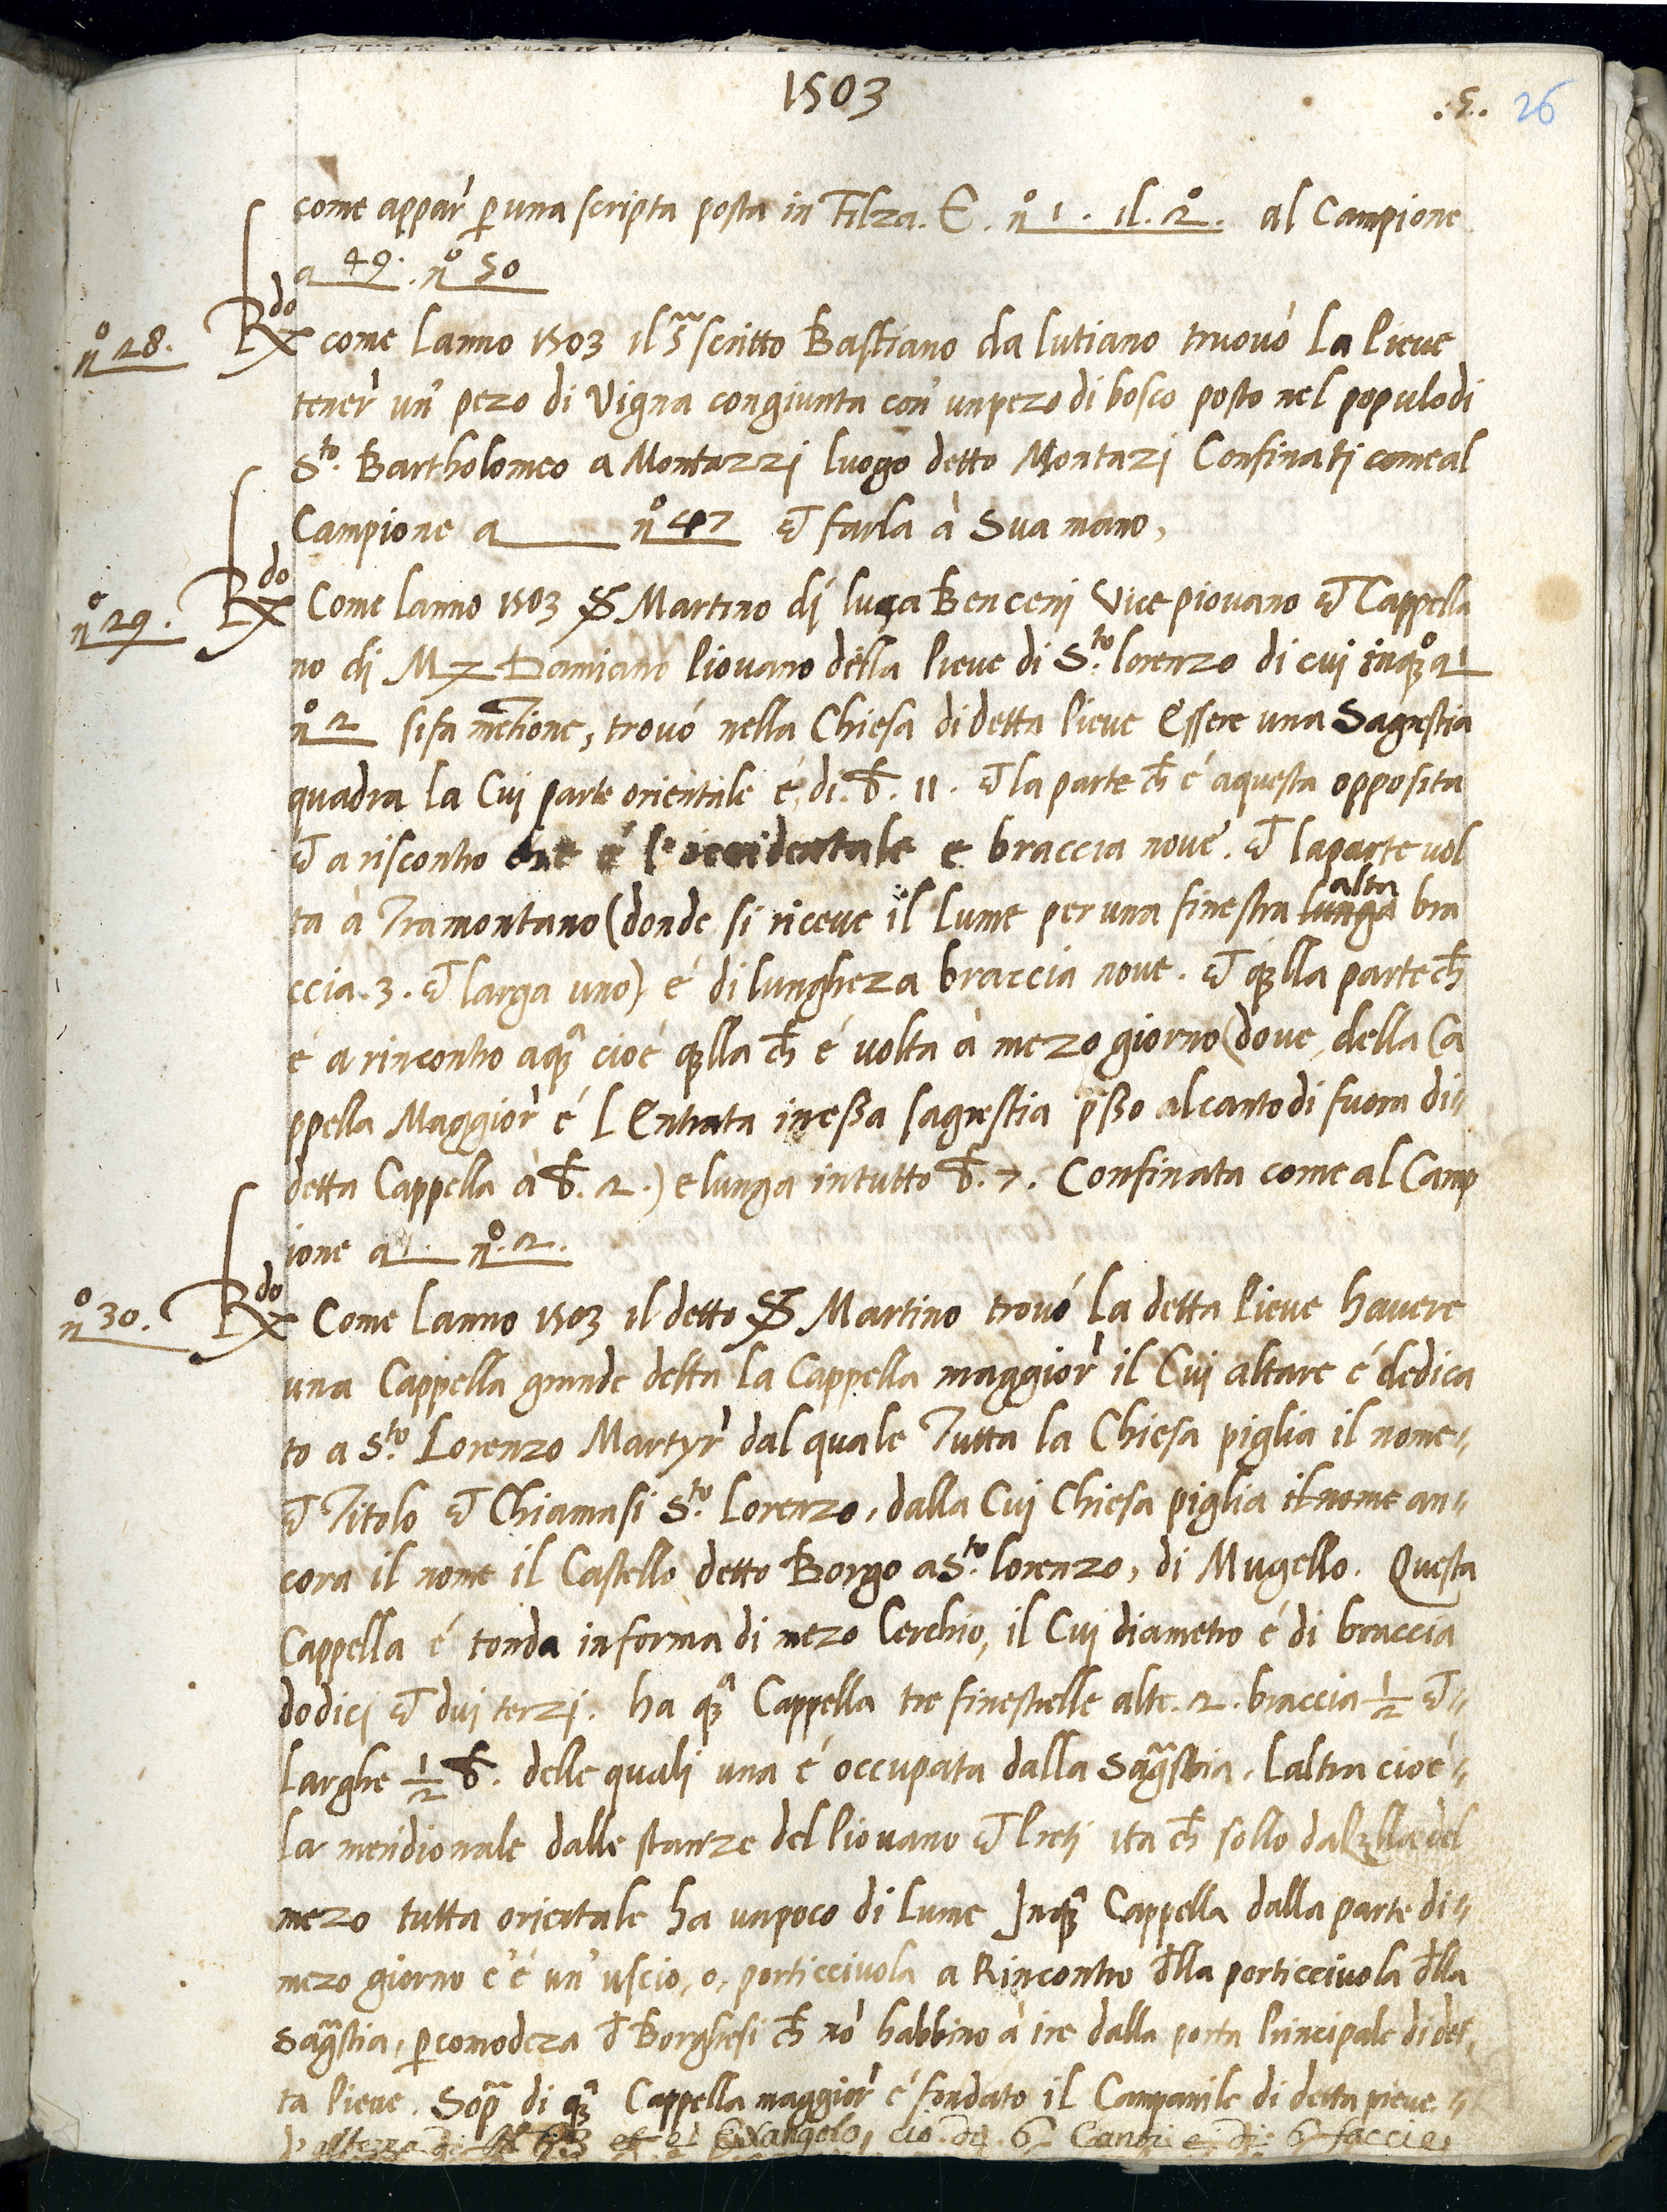 1503
.5. 26
come appar̀ p una scripta posta in Filza. E. n.o 1. il. 2.o al Campione
a 49. no 50
no 28. Rdo come lanno 1503 il s.scritto Bastiano da lutiano truovó La Pieve
tener̀ un' pezo di Vigna congiunta con' un pezo di bosco posto nel populo di
Sto. Bartholomeo a Montazzi luogo detto Montazi Confinati come al
Campione a no 47 et farla à Sua mano,
no 29. Rdo Come lanno 1503 Martino di luca Benceni Vice piovano et Cappella
no di M Damiano Piovano della Pieve di Sto. lorenzo di cui in qo a 1
no 2 si fa metione, trovó nella Chiesa di detta Pieve Essere una Sagrestia
quadra la Cui parte orientale é, di. b. 11. et la parte ch é a questa opposita
et a riscontro che é l'occidentale e braccia nove. et la parte vol
ta à Tramontano (donde si riceve il Lume per una finestra lunga alta bra
ccia. 3. et larga uno) é di lungheza braccia nove. et qlla parte ch
é a rincontro a qa cioé qlla ch é volta à mezo giorno (dove, della Ca
ppella Maggior̀ é l Entrata in essa sagrestia psso al canto di fuora di
detta Cappella à b. 2.) e lunga in tutto b. 7. Confinata come al Camp
ione a 1. no. 2.
no 30. Rdo Come lanno 1503 il detto Martino trovó La detta Pieve havere
una Cappella grande detta La Cappella maggior̀ il Cui altare é dedica
to a Sto. Lorenzo Martyr̀ dal quale Tutta la Chiesa piglia il nome
et Titolo et Chiamasi Sto. Lorenzo, dalla Cui Chiesa piglia il nome an
cora il nome il Castello detto Borgo a Sto. lorenzo, di Mugello. Questa
Cappella é tonda in forma di mezo Cerchio, il Cui diametro é di braccia
dodici et dui terzi. ha qa Cappella tre finestrelle alte. 2. braccia 1/2 et
Larghe 1/2 b. delle quali una é occupata dalla Sagstia. Laltra cioé
La meridionale dalle stanze del Piovano et Preti ita ch sollo da qlla del
mezo tutta orientale ha un poco di Lume In qa Cappella dalla parte di
mezo giorno c'é un' uscio, o, porticciuola a Rincontro dlla porticciuola dlla
Sagstia, p comodeza d Borghesi ch nò habbino à ire dalla porta Principale di det
ta Pieve. Sopa di qa Cappella maggior̀ é fondato il Campanile di detta pieve
d'altezza di et é di 6 Canti e di 6 faccie,